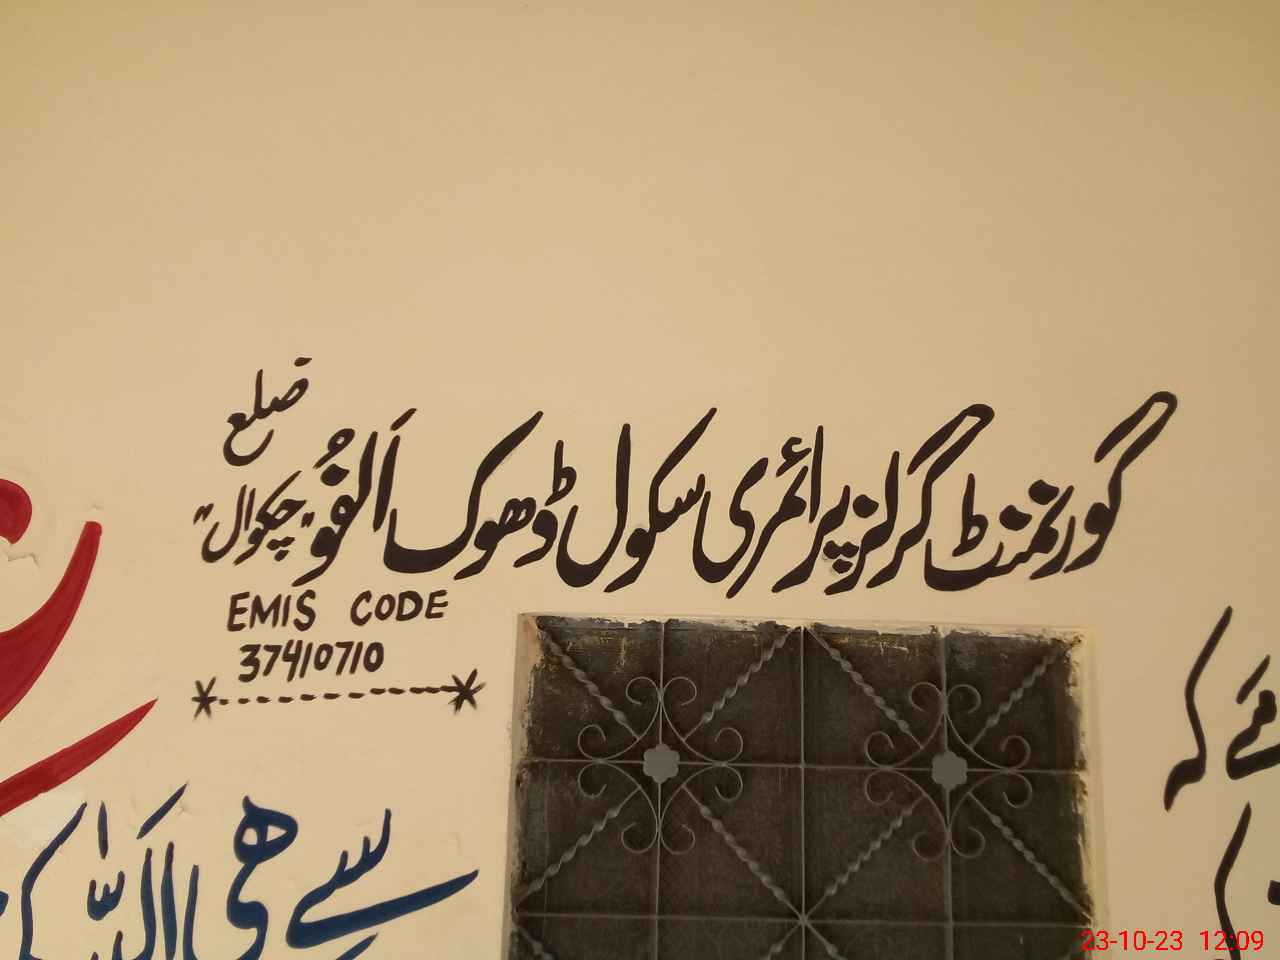 گورنمنٹ گرلز پرائمری سکول ڈھوک اَلفُو "چکوال"
ضلع
EMIS CODE
37410710
سے ھی اَللّٰہ
ئے کہ
23-10-23 12:09